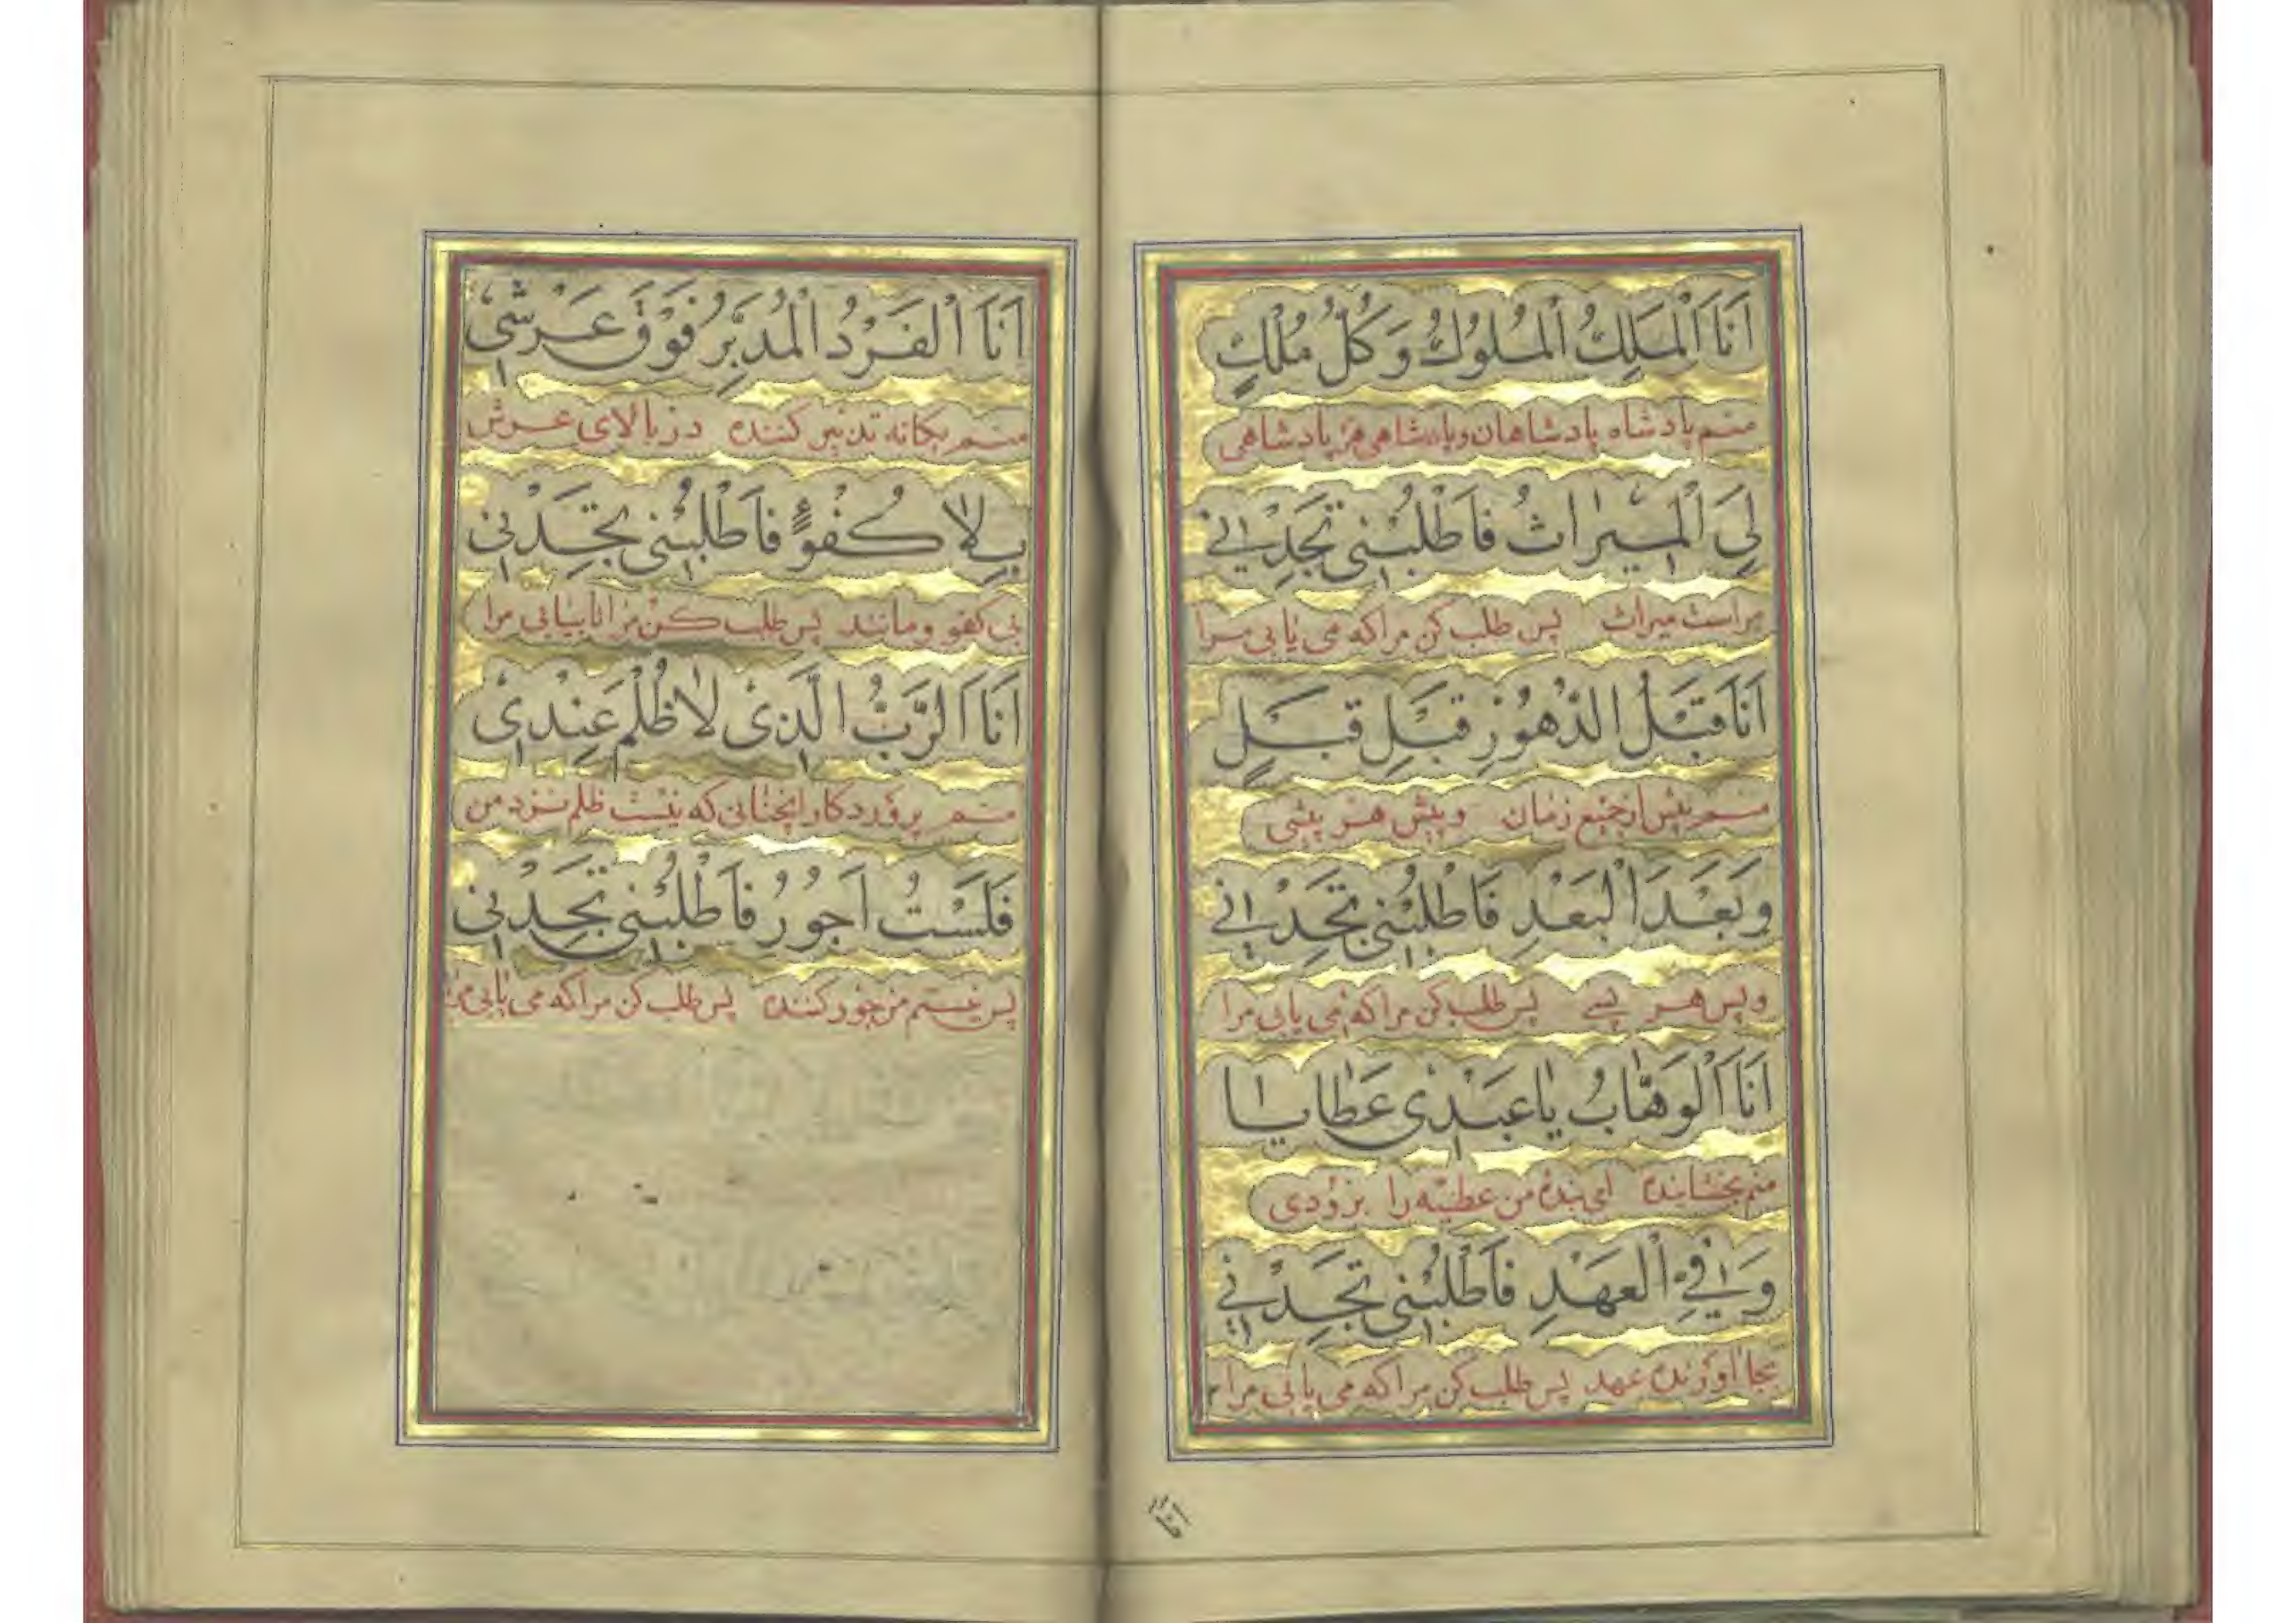 اَنَا اَلْمَلِكُ اَلْمُلُوكُ وَكُلُّ مُلْكٍ
منم پادشاه پادشاهان و پادشاهی هر پادشاهی
لِيَ الْمِيْراثُ فَاَطْلُبْنِي تَجِدْنِي
مراست میراث پس طلب کن مرا که می یابی مرا
اَنَا قَبْلُ الدُّهُوْرِ قَبْلِ قَبْلٍ
منم پیش از جمیع زمان و پیش هر پیشی
وَبَعْدَ الْبَعْدِ فَاَطْلُبْنِي تَجِدْنِي
و پس هر پسی پس طلب کن مرا که می یابی مرا
اَنَا اَلْوَهَّابُ يَا عَبْدِيْ عَطَايَا
منم بخشاینده ای بنده من عطیّه را بزودی
وَافِي الْعَهْدِ فَاَطْلُبْنِي تَجِدْنِي
بجا اورنده عهد پس طلب کن مرا که می یابی مرا
اَنَا اَلْفَرْدُ الْمُدَبِّرُ فَوْقَ عَرْشِيْ
منم یکانه تدبیر کننده در بالای عرش
بِلَا كُفُوٍ فَاَطْلُبْنِي تَجِدْنِي
بی کفو و مانند پس طلب کن مرا تا بیابی مرا
اَنَا اَلرَّبُّ الَّذِيْ لَا ظُلْمَ عِنْدِيْ
منم پروردکار انچنانی که نیست ظلم نزد من
فَلَسْتُ اَجُوْرُ فَاَطْلُبْنِي تَجِدْنِي
پس نیستم من جور کننده پس طلب کن مرا که می یابی مرا